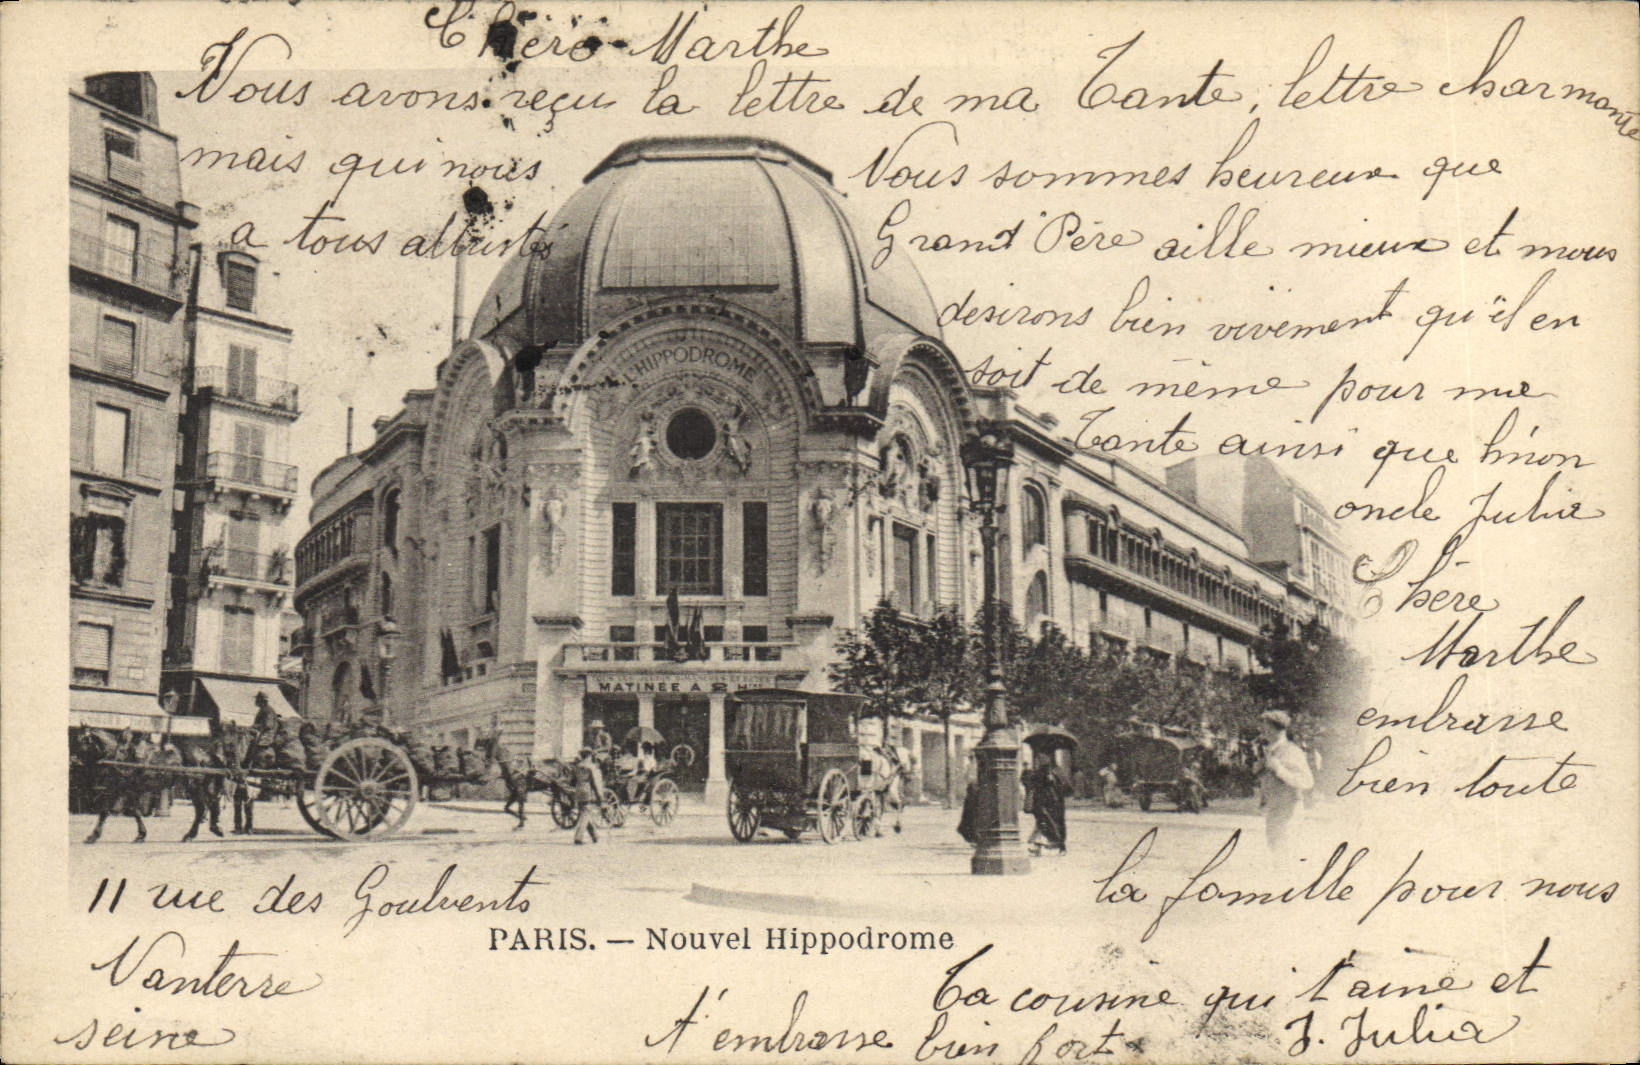 Chère Marthe
Nous avons reçu la lettre de ma Tante, lettre charmante
mais qui nous
a tous attristés
Nous sommes heureux que
Grand Père aille mieux et nous
desirons bien vivement qu'il en
soit de même pour ma
Tante ainsi que mon
oncle Julia
Chère
Marthe
embrasse
bien toute
la famille pour nous
Ta cousine qui t'aime et
t'embrasse bien fort
J. Julia
L'HIPPODROME
MATINÉE A 2 H
11 rue des Goulvents
Nanterre
seine
PARIS. — Nouvel Hippodrome